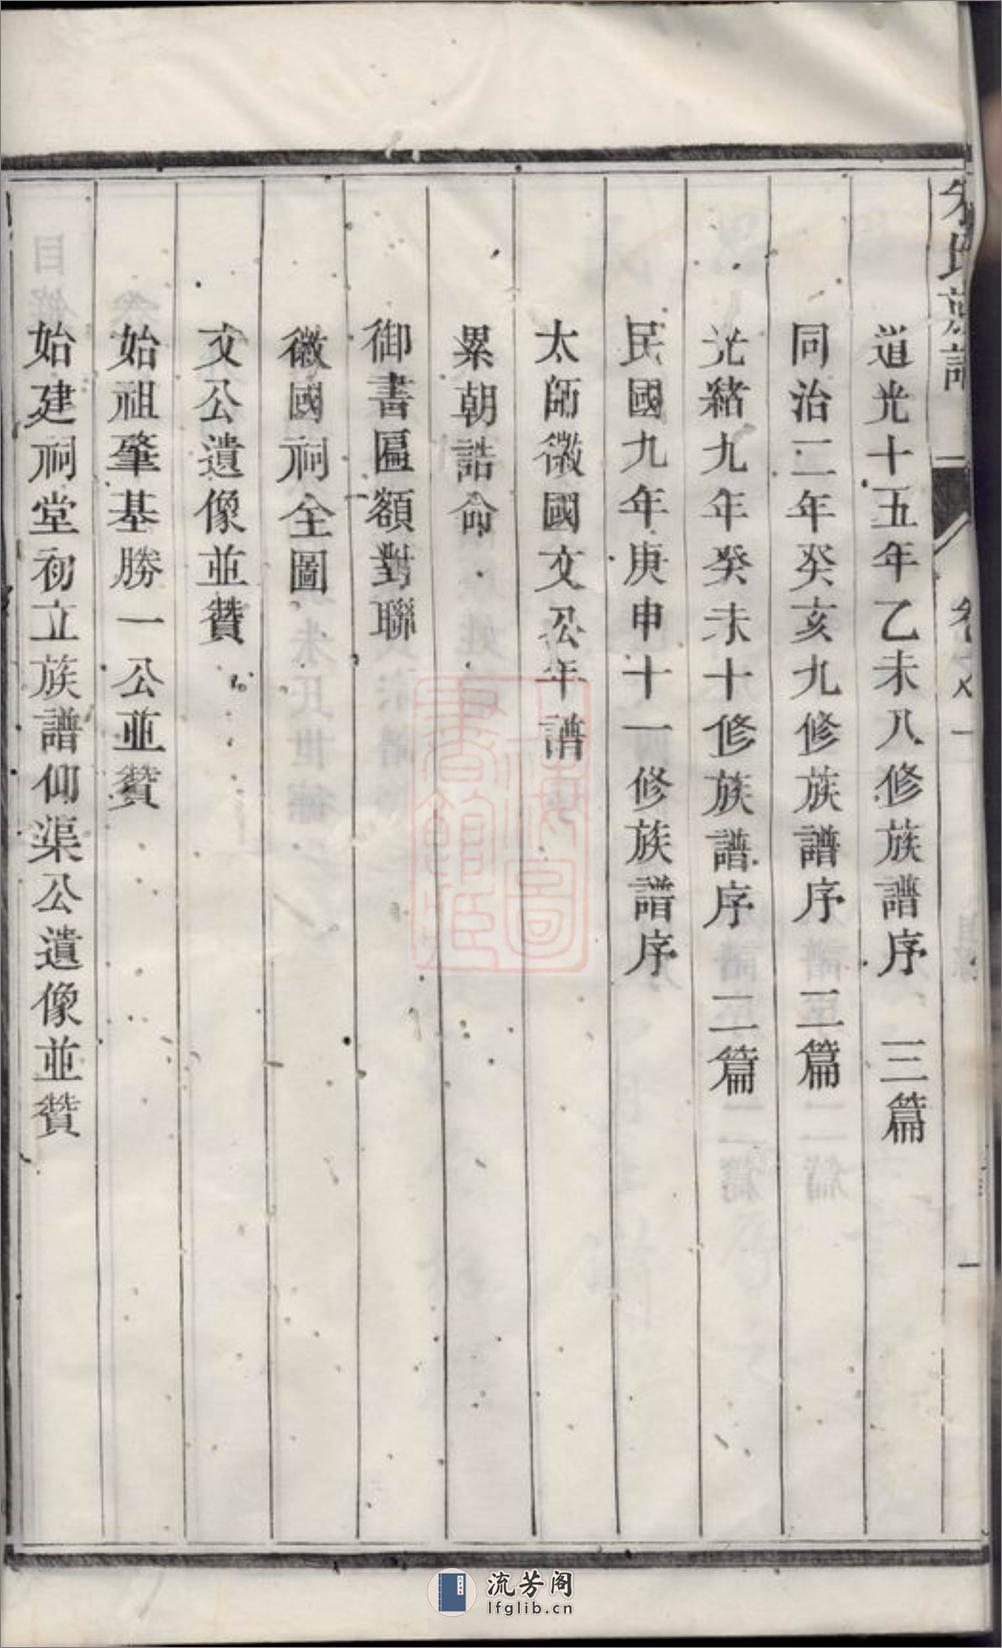 朱氏族譜
卷之一
一
道光十五年乙未八修族譜序 三篇
同治二年癸亥九修族譜序 二篇
光緒九年癸未十修族譜序 二篇
民國九年庚申十一修族譜序
太師徽國文公年譜
累朝誥命
御書匾額對聯
徽國祠全圖
文公遺像並贊
始祖肇基勝一公並贊
始建祠堂初立族譜仰渠公遺像並贊
流芳阁
lfglib.cn